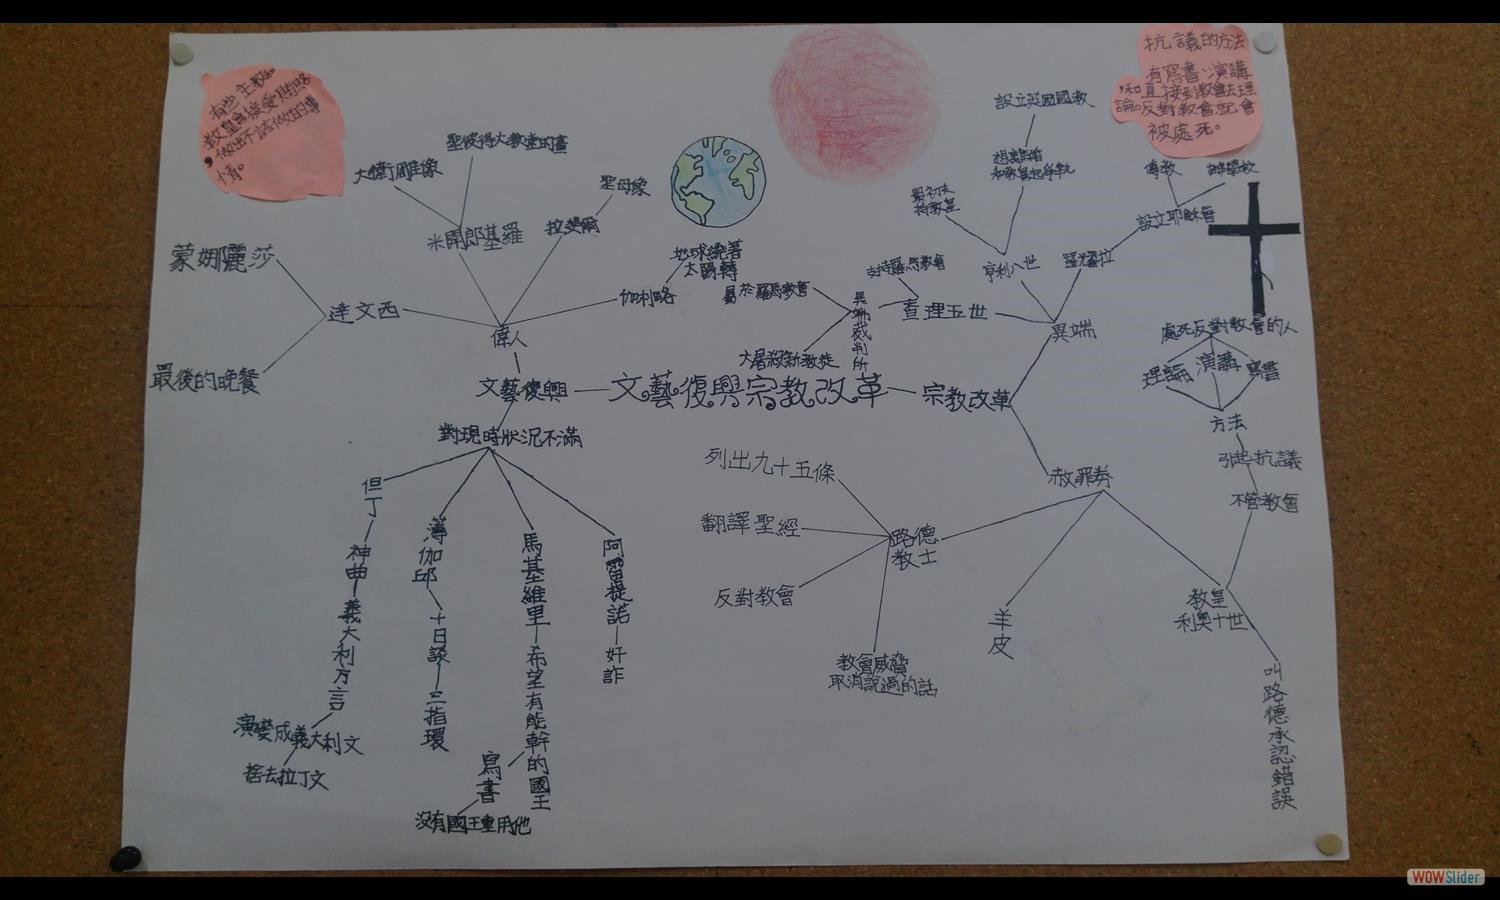 有些主教和
教皇會接受賄賂
，做出不該做的事
情。
抗議的方法
有寫書、演講
，和直接到教會去理
論。反對教會就會
被處死。
聖彼得大教堂的畫
大衛雕像
米開郎基羅
聖母像
拉斐爾
地球繞著
太陽轉
伽利略
蒙娜麗莎
達文西
最後的晚餐
偉人
文藝復興
文藝復興宗教改革
宗教改革
對現時狀況不滿
但丁
神曲
義大利方言
演變成義大利文
捨去拉丁文
薄伽邱
十日談
三指環
馬基維里
希望有能幹的國王
寫書
沒有國王重用他
阿雷提諾
奸詐
設立英國國教
想離婚
和教皇起爭執
最初支
持教皇
亨利八世
傳教
辦學校
設立耶穌會
羅耀拉
異端
支持羅馬教會
查理五世
屬於羅馬教會
異端裁判所
大屠殺新教徒
處死反對教會的人
理論
演講
寫書
方法
引起抗議
不管教會
贖罪券
列出九十五條
翻譯聖經
反對教會
路德
教士
教會威脅
取消說過的話
羊皮
教皇
利奧十世
叫路德承認錯誤
WOWSlider